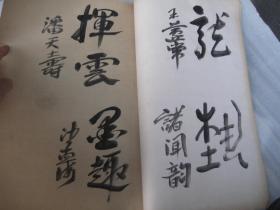 龍
王蘧常
諸聞韵
揮雲
潘天壽
墨趣
沙孟海